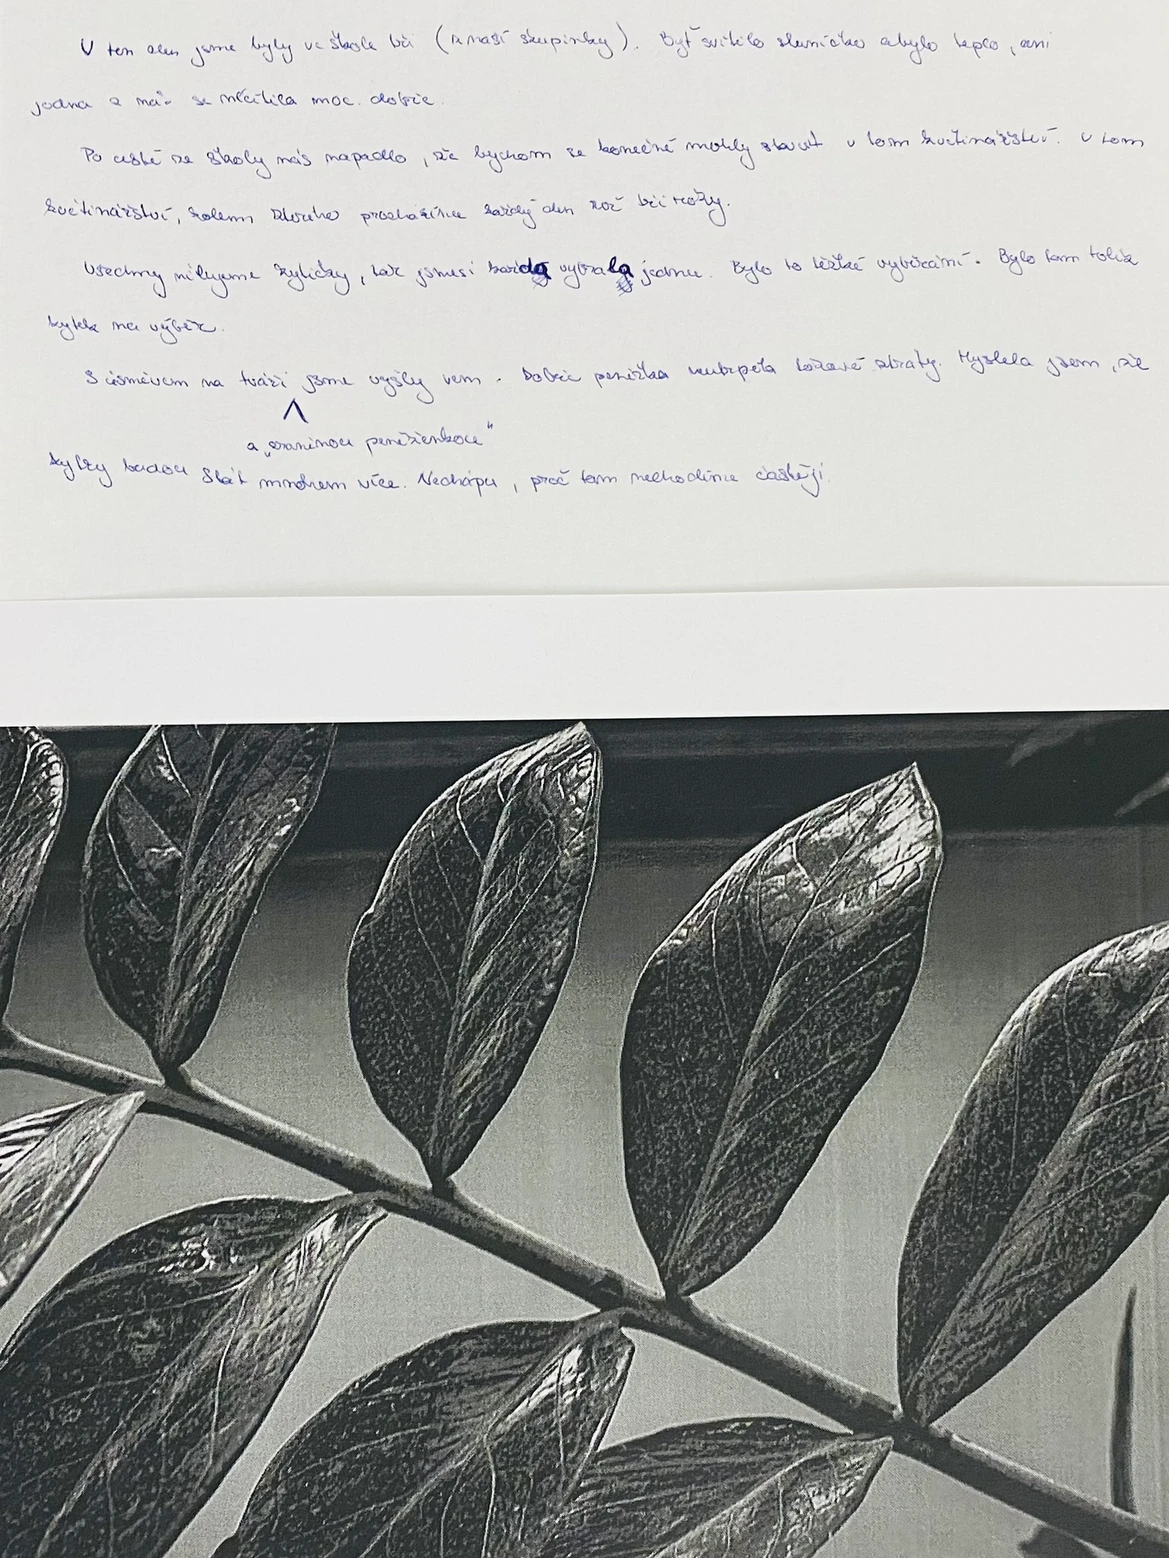 V ten den jsme byly ve škole tři (z naší skupinky). Byť svítilo sluníčko a bylo teplo, ani
jedna z nás se necítila moc dobře.
Po cestě ze školy nás napadlo, že bychom se konečně mohly stavit v tom květinářství. V tom
květinářství, kolem kterého procházíme každý den než tři roky.
Všechny milujeme kytičky, tak jsme si každá vybrala jednu. Bylo to těžké vybírání. Bylo tam tolik
kytek na výběr.
S úsměvem na tváři jsme vyšly ven. Dobře peněžka neutrpěla takové ztráty. Myslela jsem, že
a „zraněnou peněženkou"
kytky budou stát mnohem více. Nechápu, proč tam nechodíme častěji.